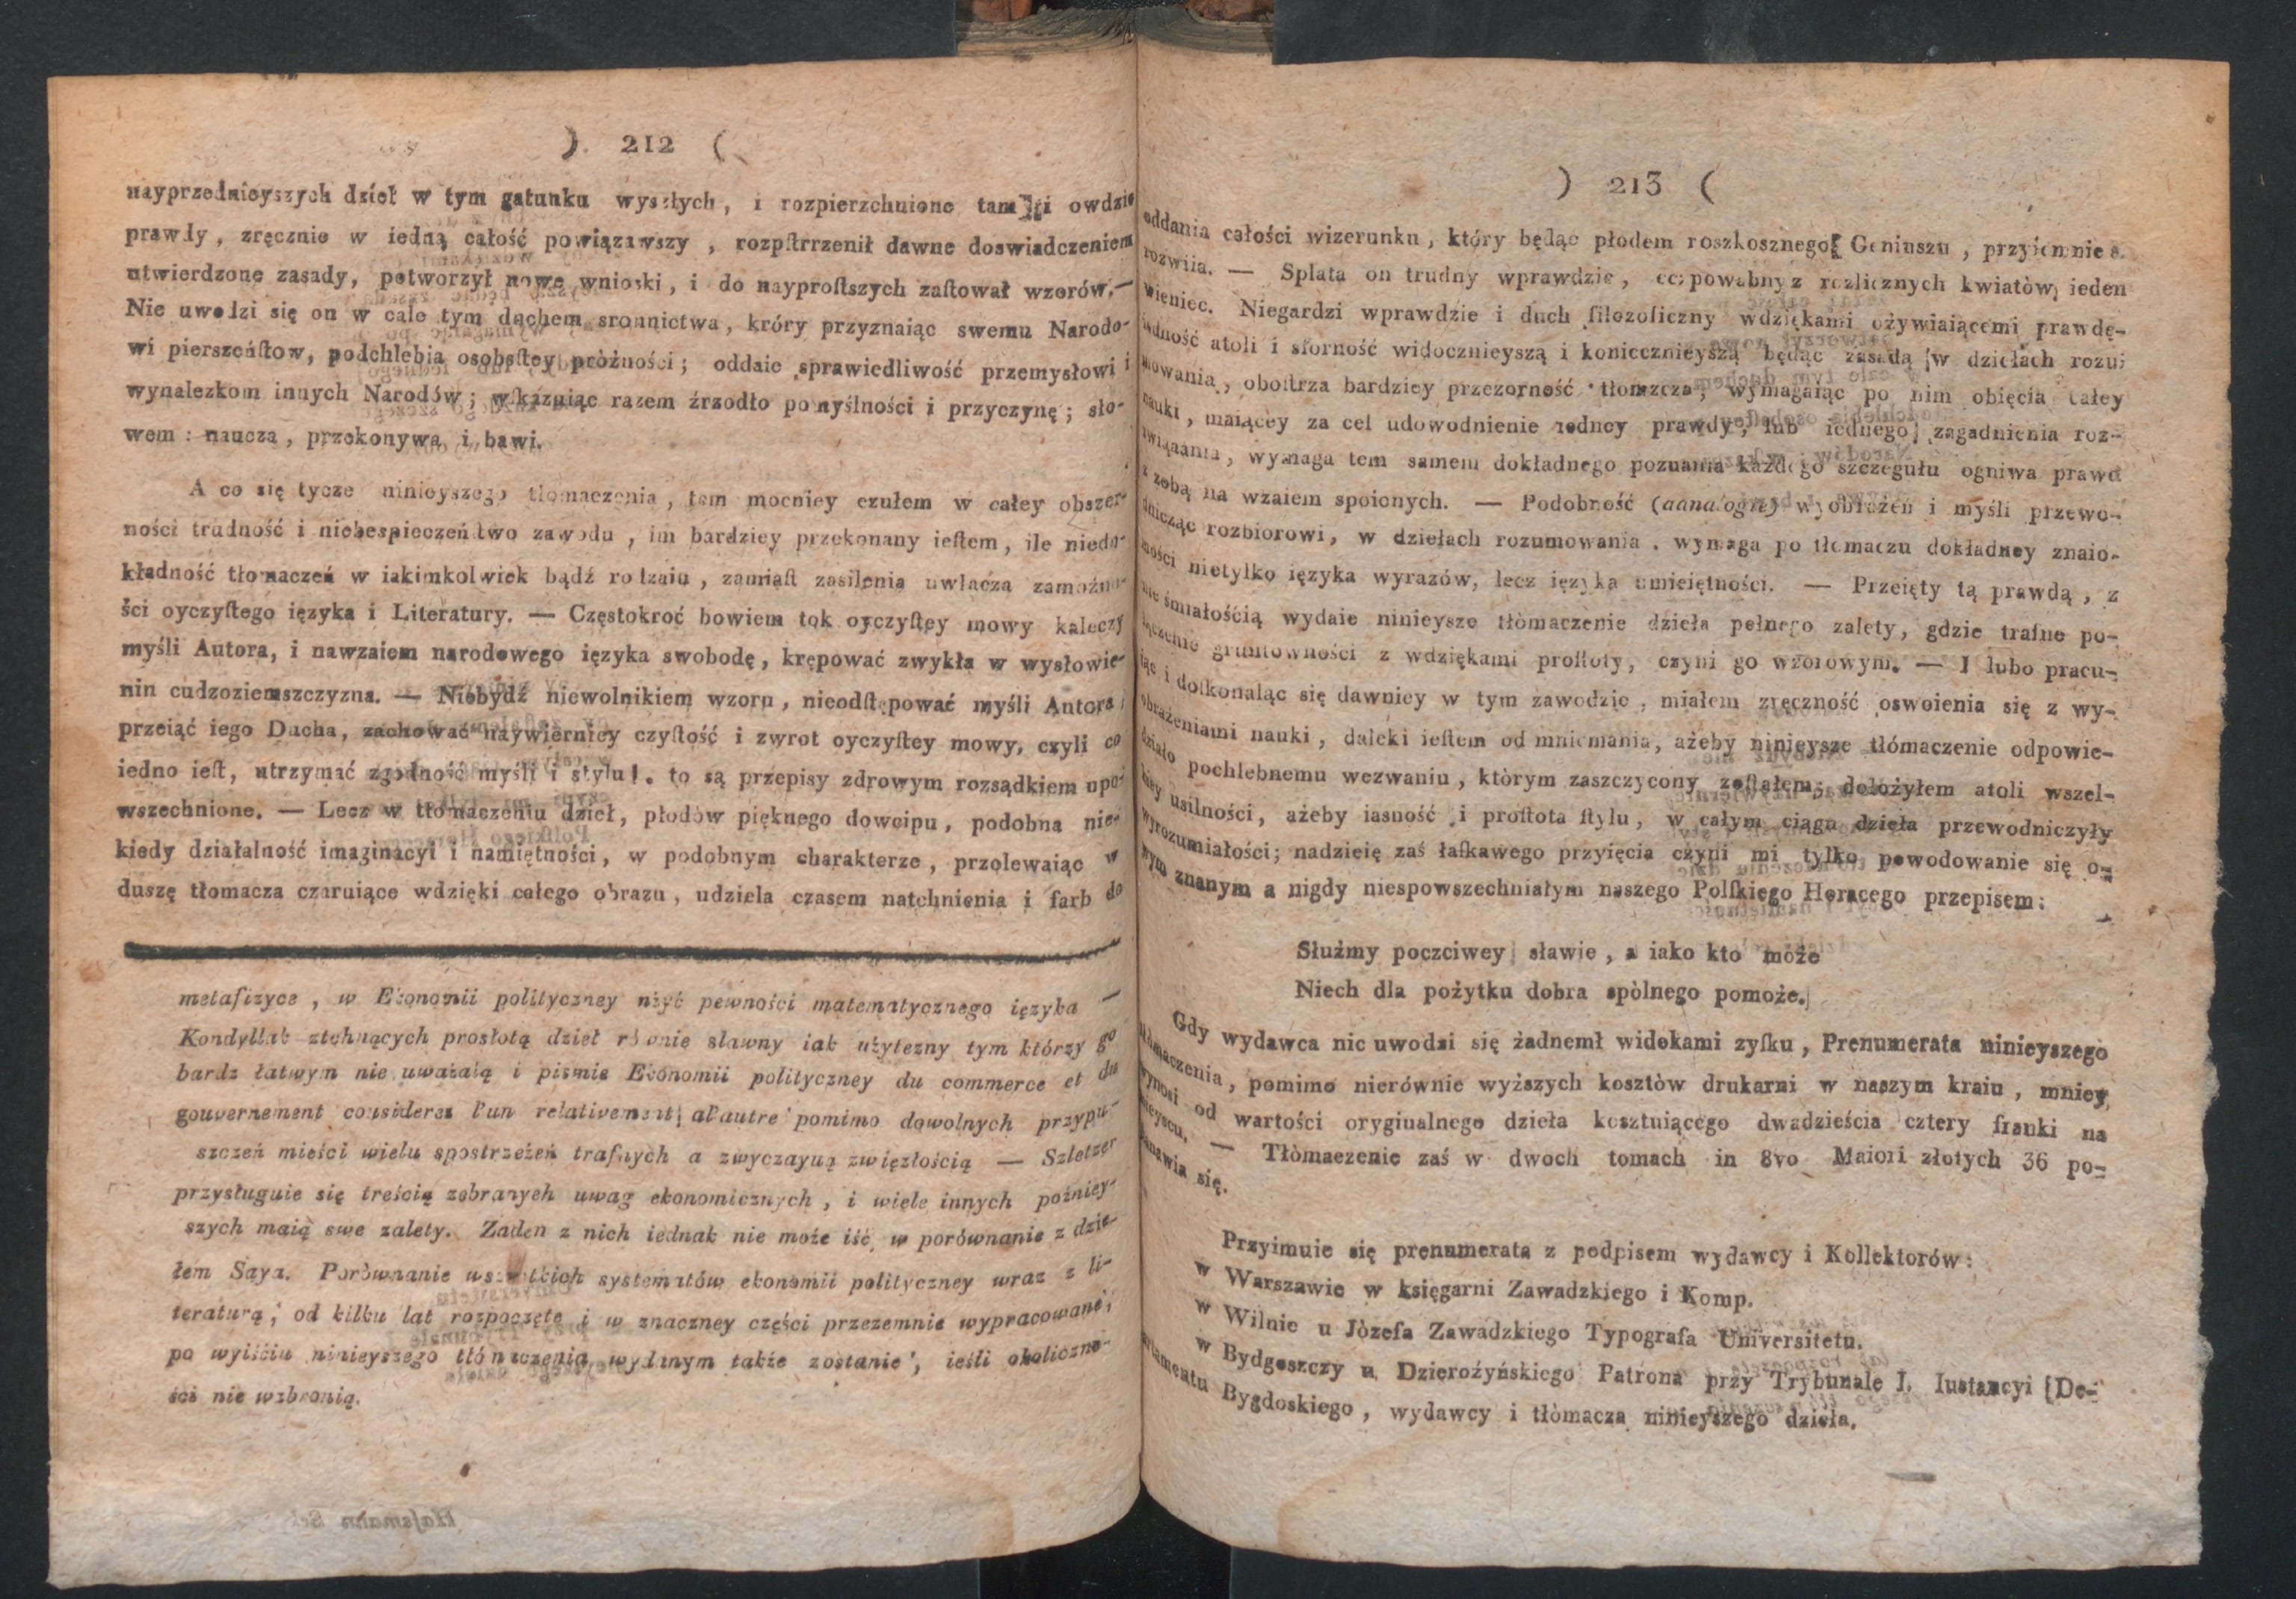 ) 212 (
nayprzednieyszych dzieł w tym gatunku wyszłych, i rozpierzchnione tam i owdzie
prawdy, zręcznie w iedną całość powiązawszy, rozpſtrrzenił dawne doswiadczeniem
utwierdzone zasady, potworzył nowe wnioski, i do nayproſtszych zaſtował wzorów. —
Nie uwodzi się on w cale tym duchem sronnictwa, króry przyznaiąc swemu Narodo-
wi pierszeńſtow, podchlebia osobſtey próżności; oddaie sprawiedliwość przemysłowi i
wynalezkom innych Narodów; wſkazuiąc razem źrzodło pomyślności i przyczynę; sło-
wem: naucza, przekonywa i bawi.
A co się tycze ninieyszego tłomaczenia, tem mocniey czułem w całey obszer-
ności trudność i niebespieczeńſtwo zawodu, im bardziey przekonany ieſtem, ile niedo-
kładność tłomaczeń w iakimkolwiek bądź rodzaiu, zamiaſt zasilenia uwłacza zamożno-
ści oyczyſtego ięzyka i Literatury. — Częstokroć bowiem tok oyczyſtey mowy kaleczy
myśli Autora, i nawzaiem narodowego ięzyka swobodę, krępować zwykła w wysłowie-
nin cudzoziemszczyzna. — Niebydź niewolnikiem wzoru, nieodſtępować myśli Autora,
przeiąć iego Ducha, zachować naywierniey czyſtość i zwrot oyczyſtey mowy, czyli co
iedno ieſt, utrzymać zgodność myśli i stylu. to są przepisy zdrowym rozsądkiem upo-
wszechnione. — Lecz w tłomaczeniu dzieł, płodów pięknego dowcipu, podobna nie-
kiedy działalność imaginacyi i namiętności, w podobnym charakterze, przelewaiąc w
duszę tłomacza czaruiące wdzięki całego obrazu, udziela czasem natchnienia i farb do
metafizyce, w Ekonomii polityczney użyć pewności matematycznego ięzyka —
Kondyllak ztchnących prosłotą dzieł równie sławny iak użytezny tym którzy go
bardz łatwym nie uważaią i pismie Ekonomii polityczney du commerce et du
gouvernement consideres l'un relativement al'autre pomimo dowolnych przypu-
szczeń mieści wielu spostrzeżeń trafnych a zwyczayną zwięzłością — Szletzer
przysługuie się treścią zebranych uwag ekonomicznych, i wiele innych poźniey-
szych maią swe zalety. Zaden z nich iednak nie może iść w porównanie z dzie-
łem Saya. Porównanie wszystkich systematów ekonomii polityczney wraz z li-
teraturą, od kilku lat rozpoczęte i w znaczney części przezemnie wypracowane,
po wyiściu ninieyszego tłómaczenia wydanym także zostanie, ieśli okoliczno-
ści nie wzbronią.
) 213 (
oddania całości wizerunku, który będąc płodem roszkosznego Geniuszu, przyiemnie s.
rozwiia. — Splata on trudny wprawdzie, powabny z rozlicznych kwiatòw, ieden
wieniec. Niegardzi wprawdzie i duch filozoficzny wdziękami ożywiaiącemi prawdę-
iedność atoli i sforność widocznieyszą i koniecznieyszą będąc zasadą w dziełach rozu-
mowania, oboſtrza bardziey przezorność tłomacza, wymagaiąc po nim obięcia całey
nauki, maiącey za cel udowodnienie iedney prawdy, lub iednego zagadnienia roz-
wiązania, wymaga tem samem dokładnego poznania każdego szczegułu ogniwa prawd
z zobą na wzaiem spoionych. — Podobność (aanalogie) wyobrażeń i myśli przewo-
dnicząc rozbiorowi, w dziełach rozumowania. wymaga po tłomaczu dokładney znaio-
mości nietylko ięzyka wyrazów, lecz ięzyka umieiętności. — Przeięty tą prawdą, z
nie śmiałością wydaie ninieysze tłòmaczenie dzieła pełnego zalety, gdzie trafne po-
łączenie gruntowności z wdziękami proſtoty, czyni go wzorowym. — I lubo pracu-
iąc i doſkonaląc się dawniey w tym zawodzie, miałem zręczność oswoienia się z wy-
obrażeniami nauki, daleki ieſtem od mniemania, ażeby ninieysze tłómaczenie odpowie-
działo pochlebnemu wezwaniu, którym zaszczycony zoſtałem; dołożyłem atoli wszel-
kiey usilności, ażeby iasność i proſtota ſtylu, w całym ciągu dzieła przewodniczyły
wyrozumiałości; nadzieię zaś łaſkawego przyięcia czyni mi tylko powodowanie się o-
wym znanym a nigdy niespowszechniałym naszego Polſkiego Horacego przepisem:
Służmy poczciwey sławie, a iako kto może
Niech dla pożytku dobra spòlnego pomoże.
Gdy wydawca nic uwodzi się żadnemł widokami zyſku, Prenumerata ninieyszego
tłómaczenia, pomimo nierównie wyższych kosztòw drukarni w naszym kraiu, mniey
wynosi od wartości oryginalnego dzieła kosztuiącego dwadzieścia cztery franki na
mieyscu. — Tłòmaczenie zaś w dwoch tomach in 8vo Maiori złotych 36 po-
stanawia się.
Przyimuie się prenumerata z podpisem wydawcy i Kollektorów:
w Warszawie w księgarni Zawadzkiego i Komp.
w Wilnie u Jòzefa Zawadzkiego Typografa Universitetu.
w Bydgoszczy u Dzierożyńskiego Patrona przy Trybunale I. Iustancyi De-
partamentu Bygdoskiego, wydawcy i tłòmacza ninieyszego dzieła.